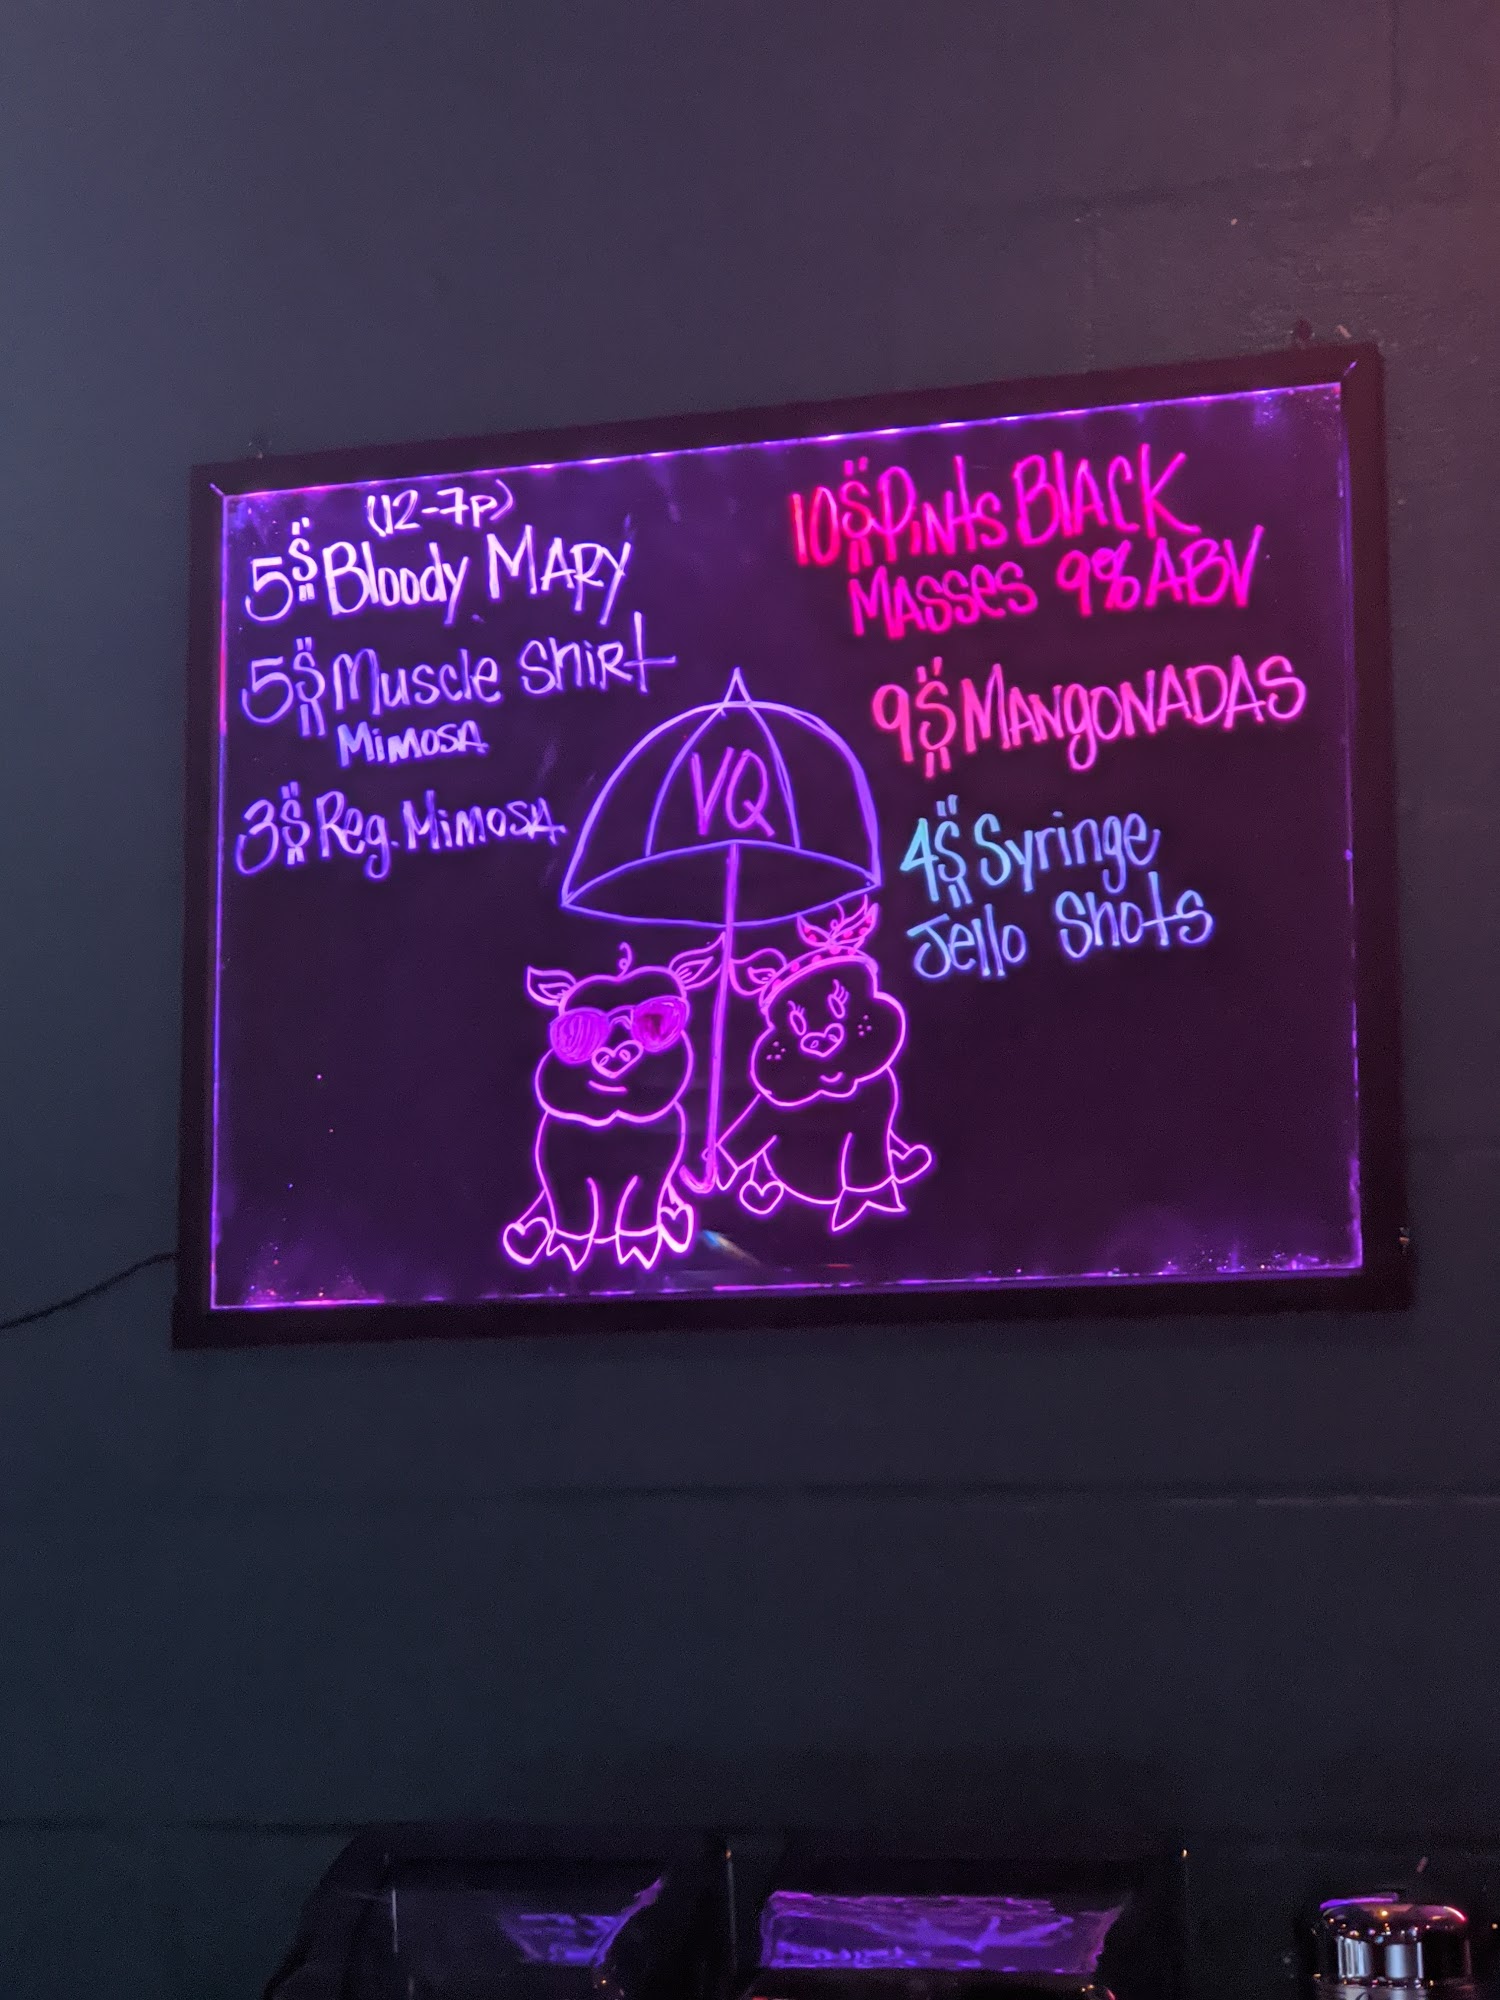 (12-7p)
5$ Bloody MARY
5$ Muscle Shirt
Mimosa
3$ Reg. Mimosa
10$ Pints Black
Masses 9% ABV
9$ MANGONADAS
4$ Syringe
Jello Shots
VQ